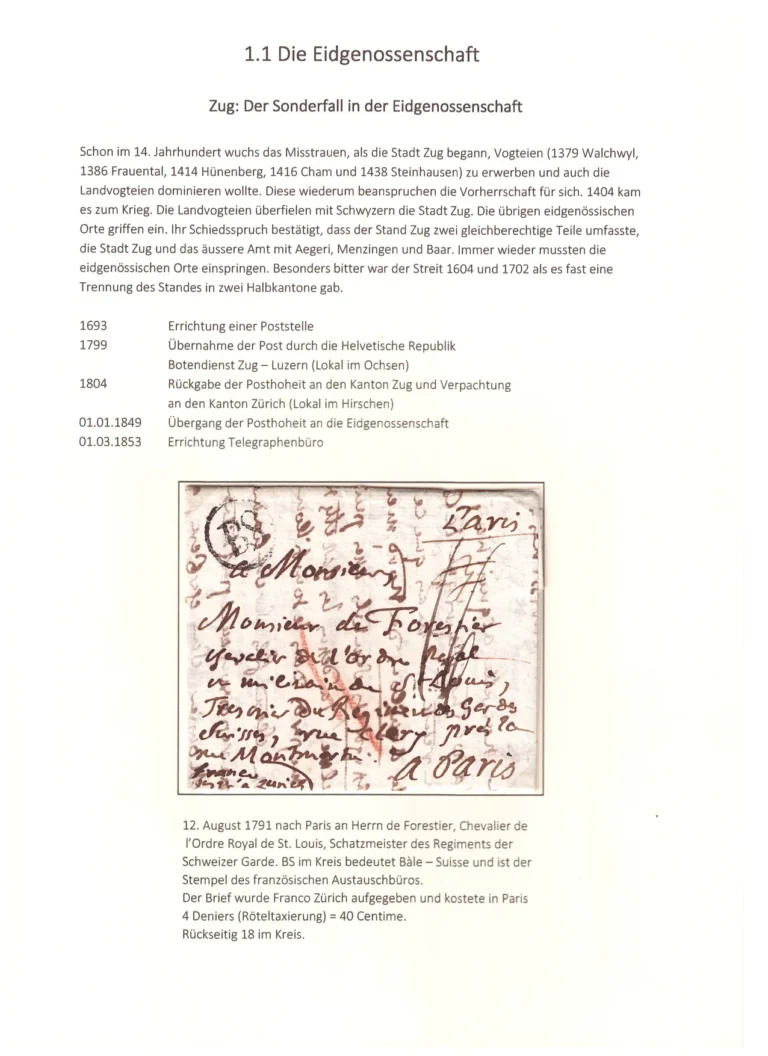 1.1 Die Eidgenossenschaft
Zug: Der Sonderfall in der Eidgenossenschaft
Schon im 14. Jahrhundert wuchs das Misstrauen, als die Stadt Zug begann, Vogteien (1379 Walchwyl,
1386 Frauental, 1414 Hünenberg, 1416 Cham und 1438 Steinhausen) zu erwerben und auch die
Landvogteien dominieren wollte. Diese wiederum beanspruchen die Vorherrschaft für sich. 1404 kam
es zum Krieg. Die Landvogteien überfielen mit Schwyzern die Stadt Zug. Die übrigen eidgenössischen
Orte griffen ein. Ihr Schiedsspruch bestätigt, dass der Stand Zug zwei gleichberechtige Teile umfasste,
die Stadt Zug und das äussere Amt mit Aegeri, Menzingen und Baar. Immer wieder mussten die
eidgenössischen Orte einspringen. Besonders bitter war der Streit 1604 und 1702 als es fast eine
Trennung des Standes in zwei Halbkantone gab.
1693 Errichtung einer Poststelle
1799 Übernahme der Post durch die Helvetische Republik
Botendienst Zug – Luzern (Lokal im Ochsen)
1804 Rückgabe der Posthoheit an den Kanton Zug und Verpachtung
an den Kanton Zürich (Lokal im Hirschen)
01.01.1849 Übergang der Posthoheit an die Eidgenossenschaft
01.03.1853 Errichtung Telegraphenbüro
BS
Paris
a Monsieur
Monsieur de Forestier
de l'ordre Royal
de St. Louis,
Du Garde
Suisses, rue Clery près la
rue Montmartre.
a Paris
franco
a Zurich
12. August 1791 nach Paris an Herrn de Forestier, Chevalier de
l'Ordre Royal de St. Louis, Schatzmeister des Regiments der
Schweizer Garde. BS im Kreis bedeutet Bàle – Suisse und ist der
Stempel des französischen Austauschbüros.
Der Brief wurde Franco Zürich aufgegeben und kostete in Paris
4 Deniers (Röteltaxierung) = 40 Centime.
Rückseitig 18 im Kreis.